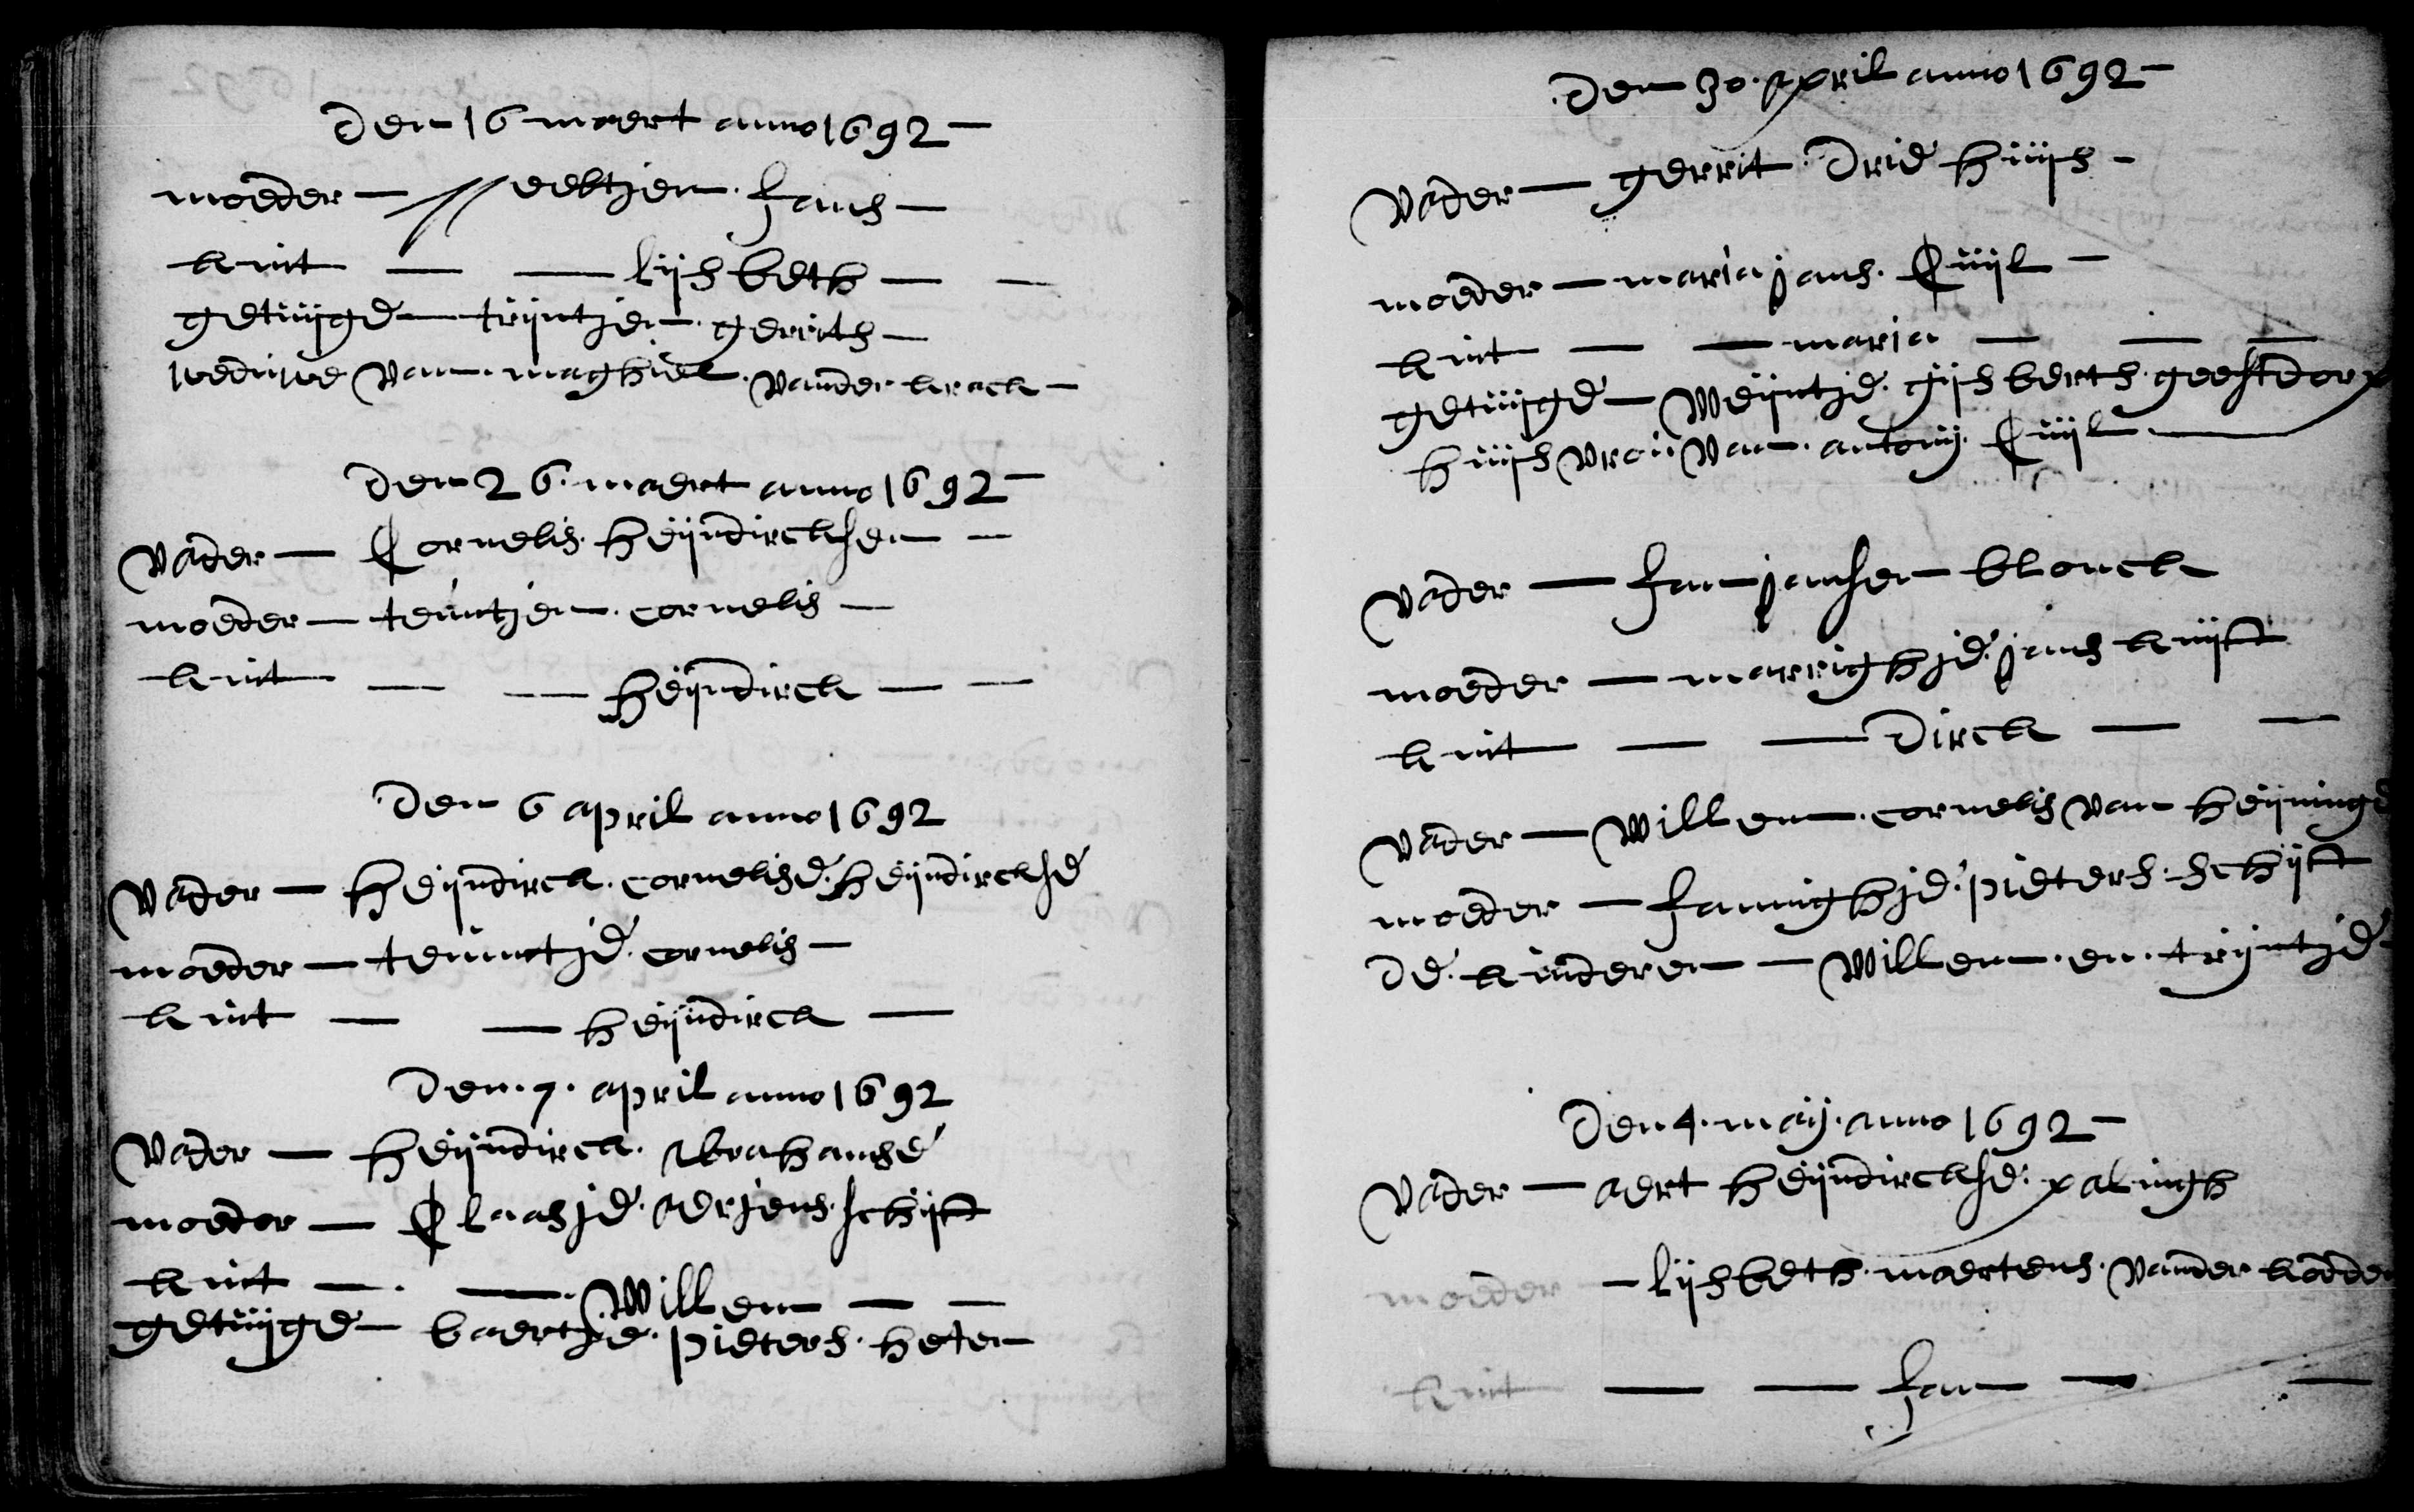 Den 16 maert anno 1692 -
moeder - Neeltjen Jans -
kint - - lijsbeth - -
getuijge - trijntjen gerrits -
weduwe van maghiel vander krack -
Den 26 maert anno 1692 -
Vader - Cornelis heijndircksen -
moeder - teuntjen cornelis -
kint - - heijndirck - -
Den 6 april anno 1692
Vader - heijndirck cornelise heijndirckse
moeder - teunctje cornelis -
kint - - heijndirck -
Den 7 april anno 1692
Vader - heijndirck abrahamse
moeder - Claasje aerjens schijft
kint - - Willem - -
getuijge - baertje pieters heten
Den 30 april anno 1692 -
Vader - gerrit Drie huijs -
moeder - maria jans Cuijl -
kint - - maria - - -
getuijge - Weijntje gijsberts geestdorp
huijsvrou van antonij Cuijl
Vader - Jan jansen blonck
moeder - marrighje jans kuijft
kint - - Dirck - -
Vader - Willem cornelis van heijninge
moeder - Jannighje pieters schijft
De kinderen - Willem en trijntje
Den 4 maij anno 1692 -
Vader - aert heijndirckse palingh
moeder - lijsbeth maertens vander kodde
kint - - Jan - -